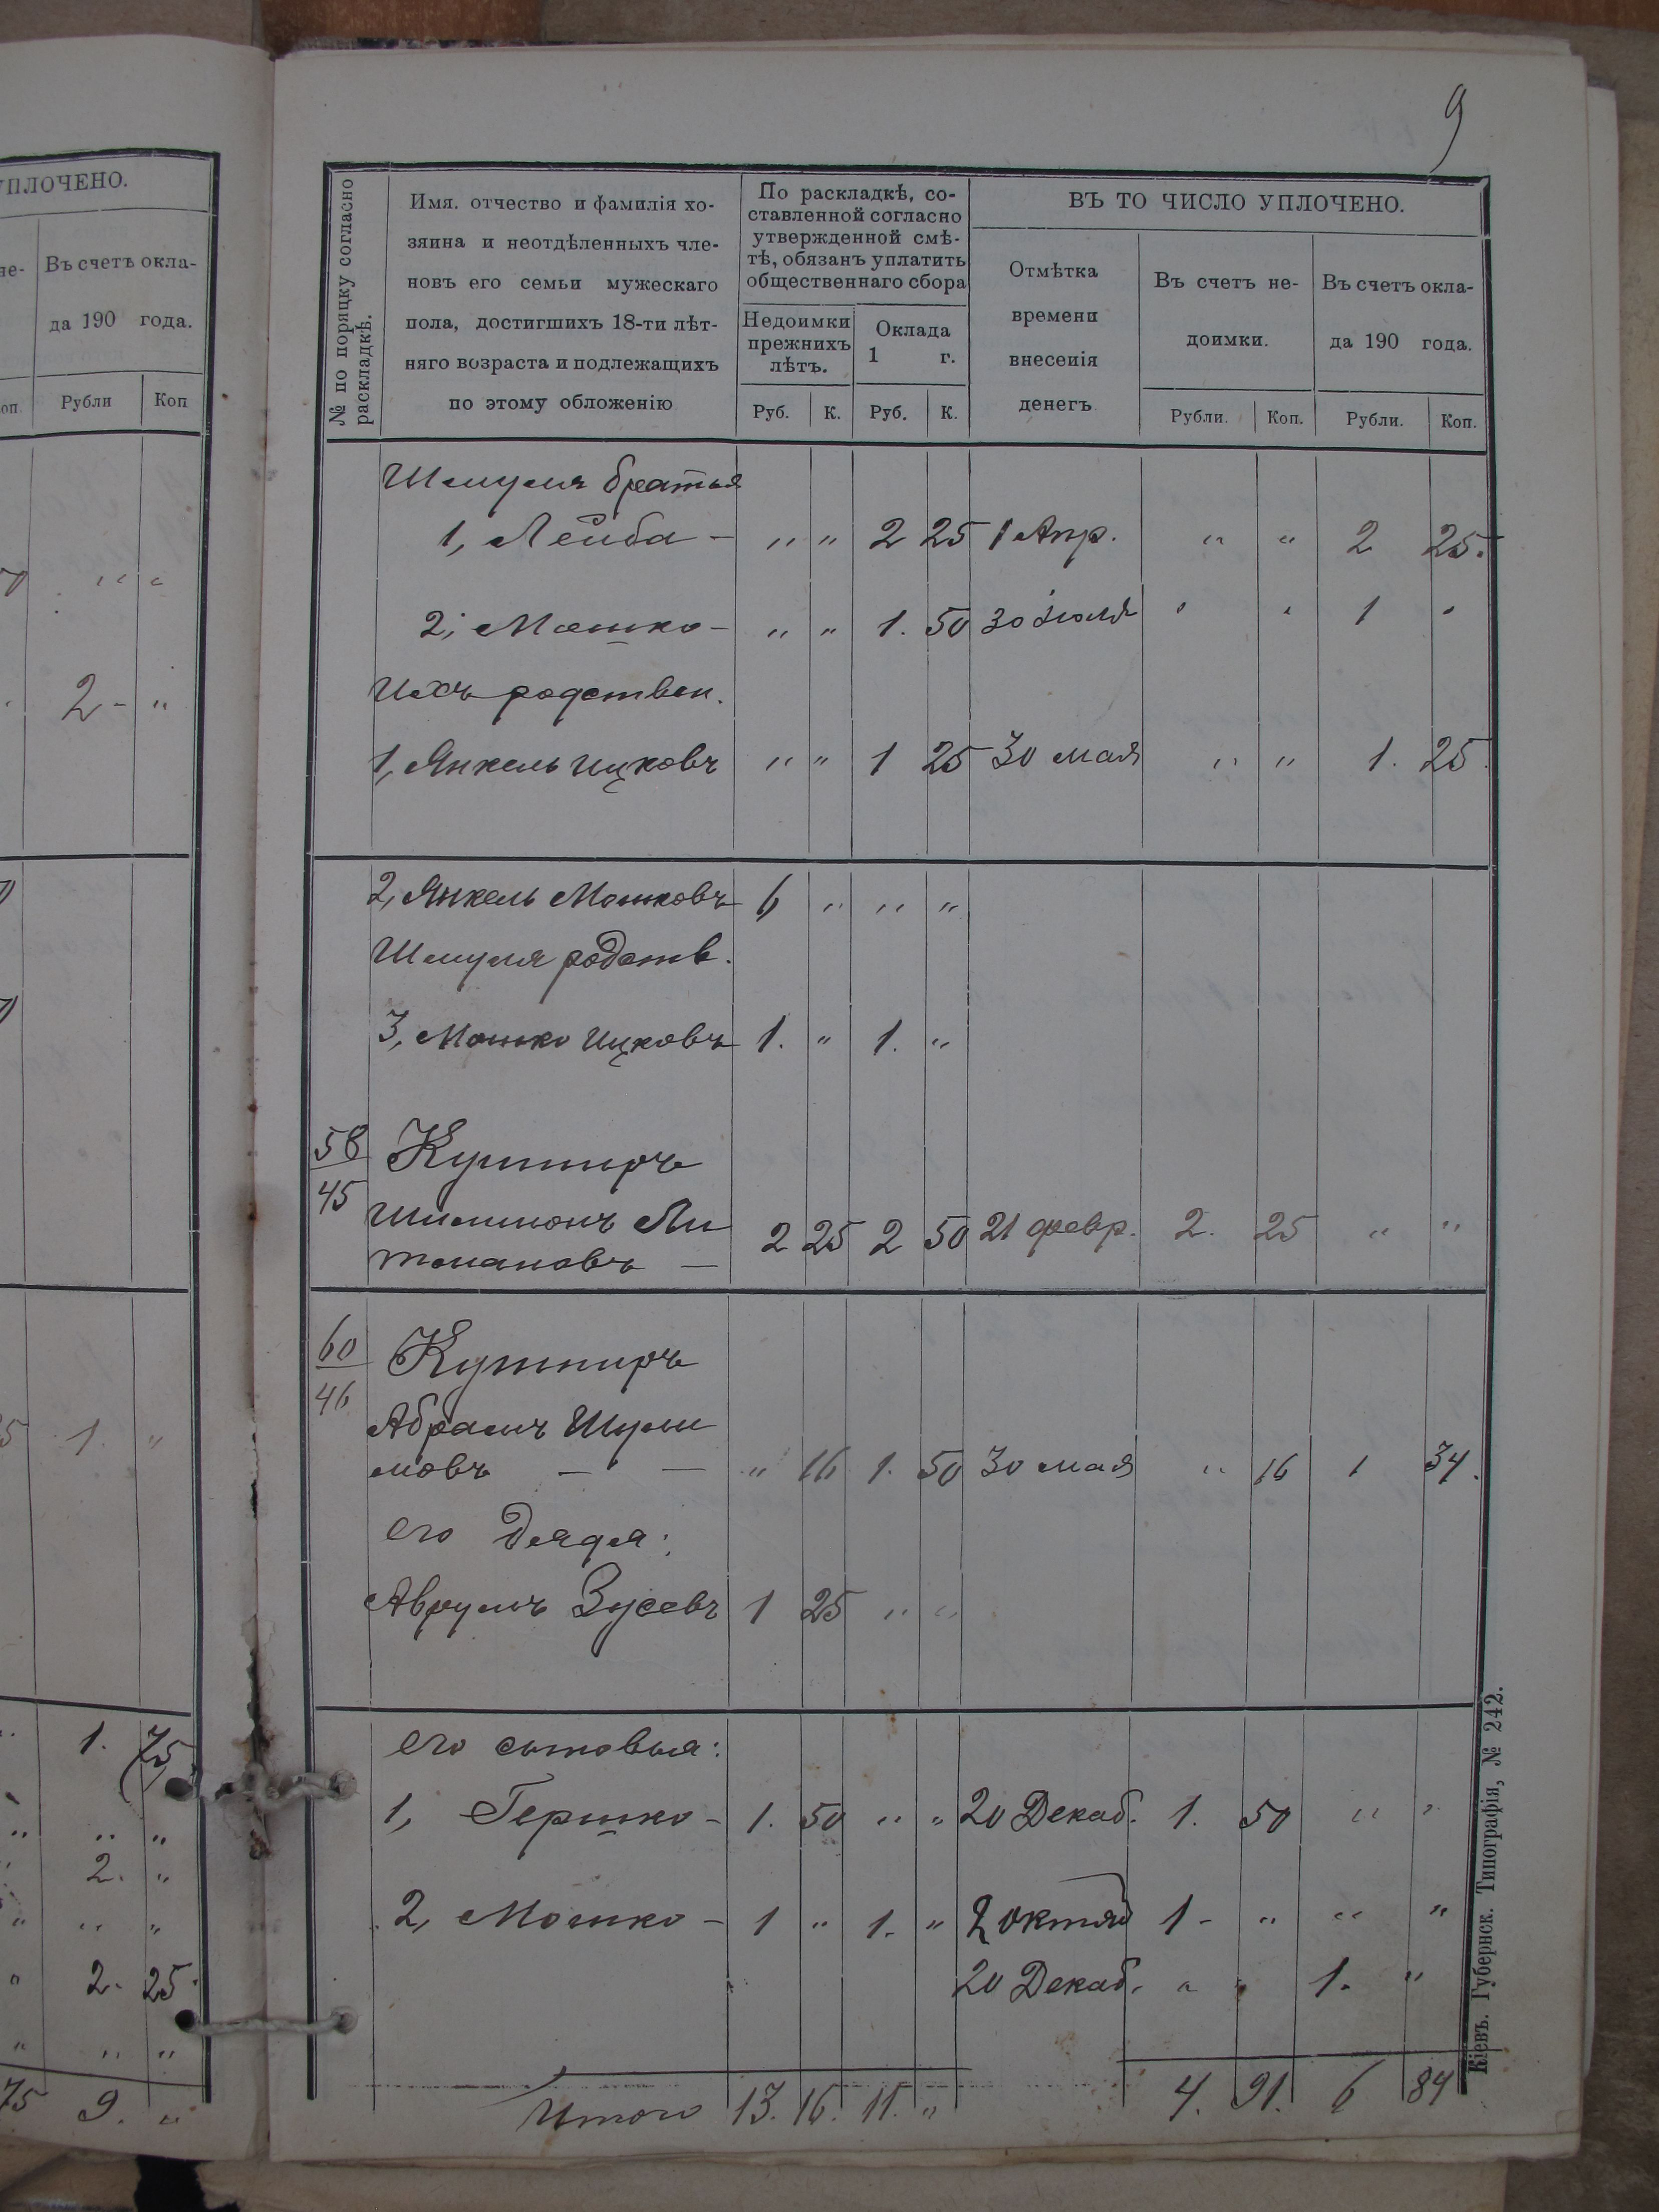 УПЛОЧЕНО.
Въ счетъ окла-
да 190 года.
Рубли Коп
2 - "
1. "
1. 75
" " "
2. "
" " "
" 2. 25.
" " "
75 9. "
9
№ по поряцку согласно
раскладкѣ.
Имя. отчество и фамилія хо-
зяина и неотдѣленныхъ чле-
новъ его семьи мужескаго
пола, достигшихъ 18-ти лѣт-
няго возраста и подлежащихъ
по этому обложенію
По раскладкѣ, со-
ставленной согласно
утвержденной смѣ-
тѣ, обязанъ уплатить
общественнаго сбора
Недоимки
прежнихъ
лѣтъ.
Оклада
1 г.
Руб. К. Руб. К.
ВЪ ТО ЧИСЛО УПЛОЧЕНО.
Отмѣтка
времени
внесенія
денегъ
Въ счетъ не-
доимки.
Рубли. Коп.
Въ счетъ окла-
да 190 года.
Рубли. Коп.
Шмуля братья
1, Лейба - " " 2 25 1 Апр. " " 2 25.
2, Мошко - " " 1. 50 30 Іюля " " 1 "
Ихъ родствен.
1, Янкель Ицковъ " " 1 25 30 мая " " 1. 25.
2, Янкель Мошковъ 6 " " "
Шмуля родств.
3, Мошко Ицковъ 1. " 1. "
58 Кушниръ
45 Шимшонъ Ли
тмановъ - 2 25 2 50 21 февр. 2. 25 " "
60 Кушниръ
46
Абрамъ Шули
мовъ - - " 16 1. 50 30 мая " 16 1 34.
его дядя:
Аврумъ Зусевъ 1 25 " "
его сыновья:
1, Гершко - 1. 50 " " 20 Декаб. 1. 50 " "
2, Мошко - 1 " 1. " 2 октяб 1 - " " "
20 Декаб. " " 1. "
Итого 13. 16. 11. " 4. 91. 6 84
Кіевъ. Губернск. Типографія, № 242.